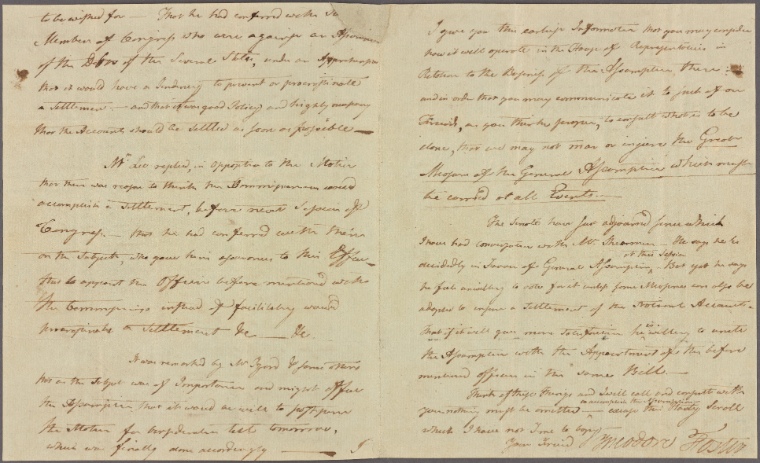 to be wished for — That he had conferred with
Member of Congress who were against an Assumption
of the Debts of the Several States, under an Apprehension
that it would have a Tendency to prevent or procrastinate
a Settlement — and that it was good Policy and highly necessary
that the Accounts should be Settled as soon as possible —
Mr Lee replied, in opposition to the Motion
that there was reason to think the Commissioners would
accomplish a Settlement, before next Session of
Congress — that he had conferred with them
on the Subject, who gave him assurances to this Effect
that to appoint the Officers before mentioned with
the Commissioners instead of facilitating would
procrastinate a Settlement &c — &c
It was remarked by Mr Izard & some others
that as the Subject was of Importance and might affect
the Assumption, that it would be well to postpone
the Motion for Consideration till tomorrow,
which was finally done accordingly — I
I give you this earliest Information that you may consider
how it will operate in the House of Representatives in
Relation to the Business of the Assumption there:
and in order that you may communicate it to such of our
Friends, as you think proper, to consult what is to be
done, that we may not mar or injure the Great
Measure of the General Assumption which must
be carried at all Events —
The Senate have just adjourned since which
I have had conversation with Mr. Sherman — He says he is
decidedly in Favour of General Assumption, at this Session But yet he says
he feels unwilling to vote for it unless some Measures can also be
adopted to ensure a Settlement of the National Accounts—
that if it will give more Satisfaction he is willing to unite
the Assumption with the Appointment of the before
mentioned officers in the Same Bill —
Think of these Things and I will call and consult with
you nothing must be omitted to accomplish the Assumption — excuse the Hasty Scroll
which I have not Time to copy —
Your Friend Theodore Foster